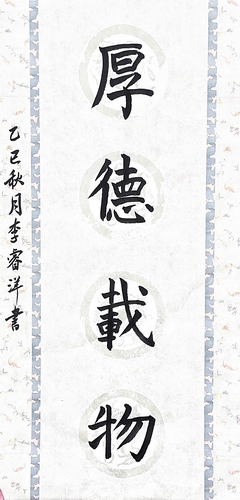 厚德載物
乙巳秋月李睿洋書